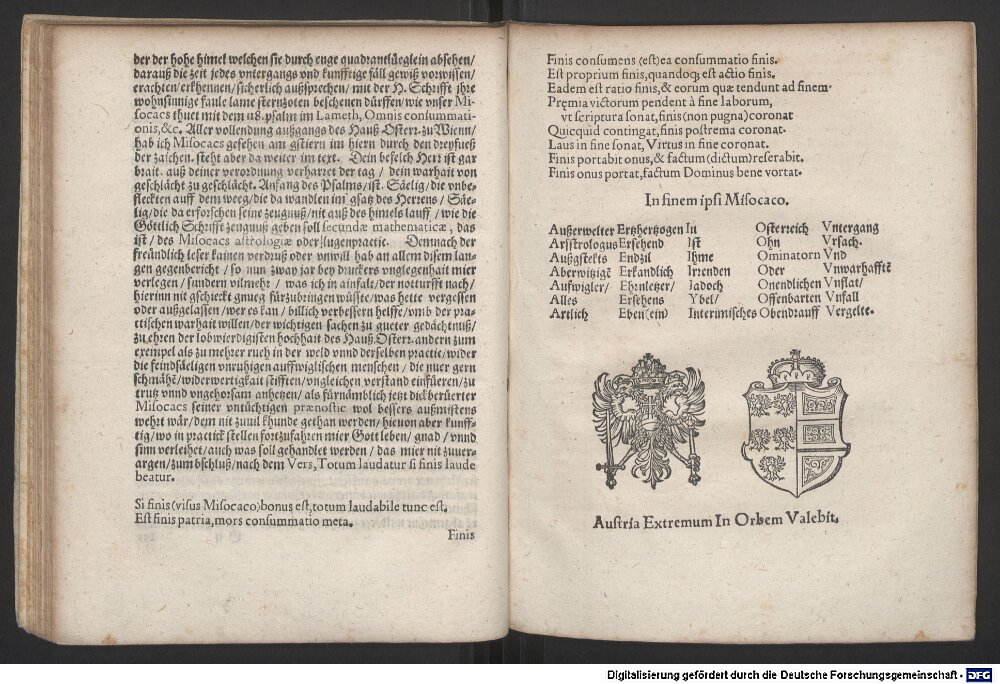 der der hohe himel welchen sie durch enge quadrantlüeglein absehen/
darauß die zeit jedes vntergangs vnd kunfftige fäll gewiß vorwissen/
erachten/erkhennen/sicherlich außsprechen/ mit der H. Schrifft jhre
wohnsinnige faule lame sternzoten beschenen dürffen/ wie vnser Mi-
socacs thuet mit dem 118. psalm im Lameth, Omnis consummati-
onis, &c. Aller vollendung außgangs des Hauß Osterr. zu Wienn/
hab ich Misocacs gesehen am gstiern im hiern durch den dreyfueß
der zaichen. steht aber da weiter im text. Dein befelch Herr ist gar
brait. auß deiner verordnung verharret der tag / dein warhait von
geschlächt zu geschlächt. Anfang des Psalms/ist. Säelig/die vnbe-
fleckten auff dem weeg/die da wandlen im gsatz des Herrens / Säe-
lig/die da erforschen seine zeugnuß/nit auß des himels lauff / wie die
Göttlich Schrifft zeugnuß geben soll secundæ mathematicæ, das
ist / des Misocacs astrologiæ oder lugenpractic. Demnach der
freündlich leser kainen verdruß oder vnwill hab an allem disem lan-
gen gegenbericht / so nun zway jar bey druckers vnglegenhait mier
verlegen / sundern vilmehr / was ich in ainfalt/der notturfft nach/
hierinn nit gschickt gnueg fürzubringen wüßte/was hette vergessen
oder außgelassen/wer es kan / billich verbessern helffe/vmb der pra-
ctischen warhait willen/der wichtigen sachen zu gueter gedächtnuß/
zu ehren der lobwierdigisten hochhait des Hauß Osterr. andern zum
exempel als zu mehrer ruch in der welt vnnd derselben practic/wider
die feindsäeligen vnruhigen auffwiglischen menschen / die nuer gern
schmähē/widerwertigkait stifften/vngleichen verstand einfüeren/zu
trutz vnnd vngehorsam anhetzen/als fürnämblich jetzt dick berüerter
Misocacs seiner vntüchtigen prænostic wol bessers außmistens
wehrt wär/dem nit zuuil khunde gethan werden/hieuon aber kunff-
tig/wo in practick stellen fortzufahren mier Gott leben/ gnad / vnnd
sinn verleihet/auch was soll gehandlet werden / das mier nit zuuer-
argen/zum bschluß/nach dem Vers, Totum laudatur si finis laude
beatur.
Si finis (visus Misocaco) bonus est, totum laudabile tunc est.
Est finis patria, mors consummatio meta.
Finis
Finis consumens (est) ea consummatio finis.
Est proprium finis, quandoq; est actio finis.
Eadem est ratio finis, & eorum quæ tendunt ad finem.
Pręmia victorum pendent à fine laborum,
vt scriptura sonat, finis (non pugna) coronat
Quicquid contingat, finis postrema coronat.
Laus in fine sonat, Virtus in fine coronat.
Finis portabit onus, & factum (dictum) referabit.
Finis onus portat, factum Dominus bene vortat.
In finem ipsi Misocaco.
Außerwelter Ertzhertzogen In Osterreich Vntergang
Arsstrologus Ersehend Ist Ohn Vrsach.
Außgstekts Endzil Ihme Ominatorn Vnd
Aberwitzigē Erkandlich Irrenden Oder Vnwarhafftē
Aufwigler/ Ehrnletzer/ Iadoch Onendlichen Vnflat/
Alles Ersehens Ybel/ Offenbarten Vnfall
Artlich Eben(ein) Interimisches Obendrauff Vergelte.
Austria Extremum In Orbem Valebit.
Digitalisierung gefördert durch die Deutsche Forschungsgemeinschaft - DFG